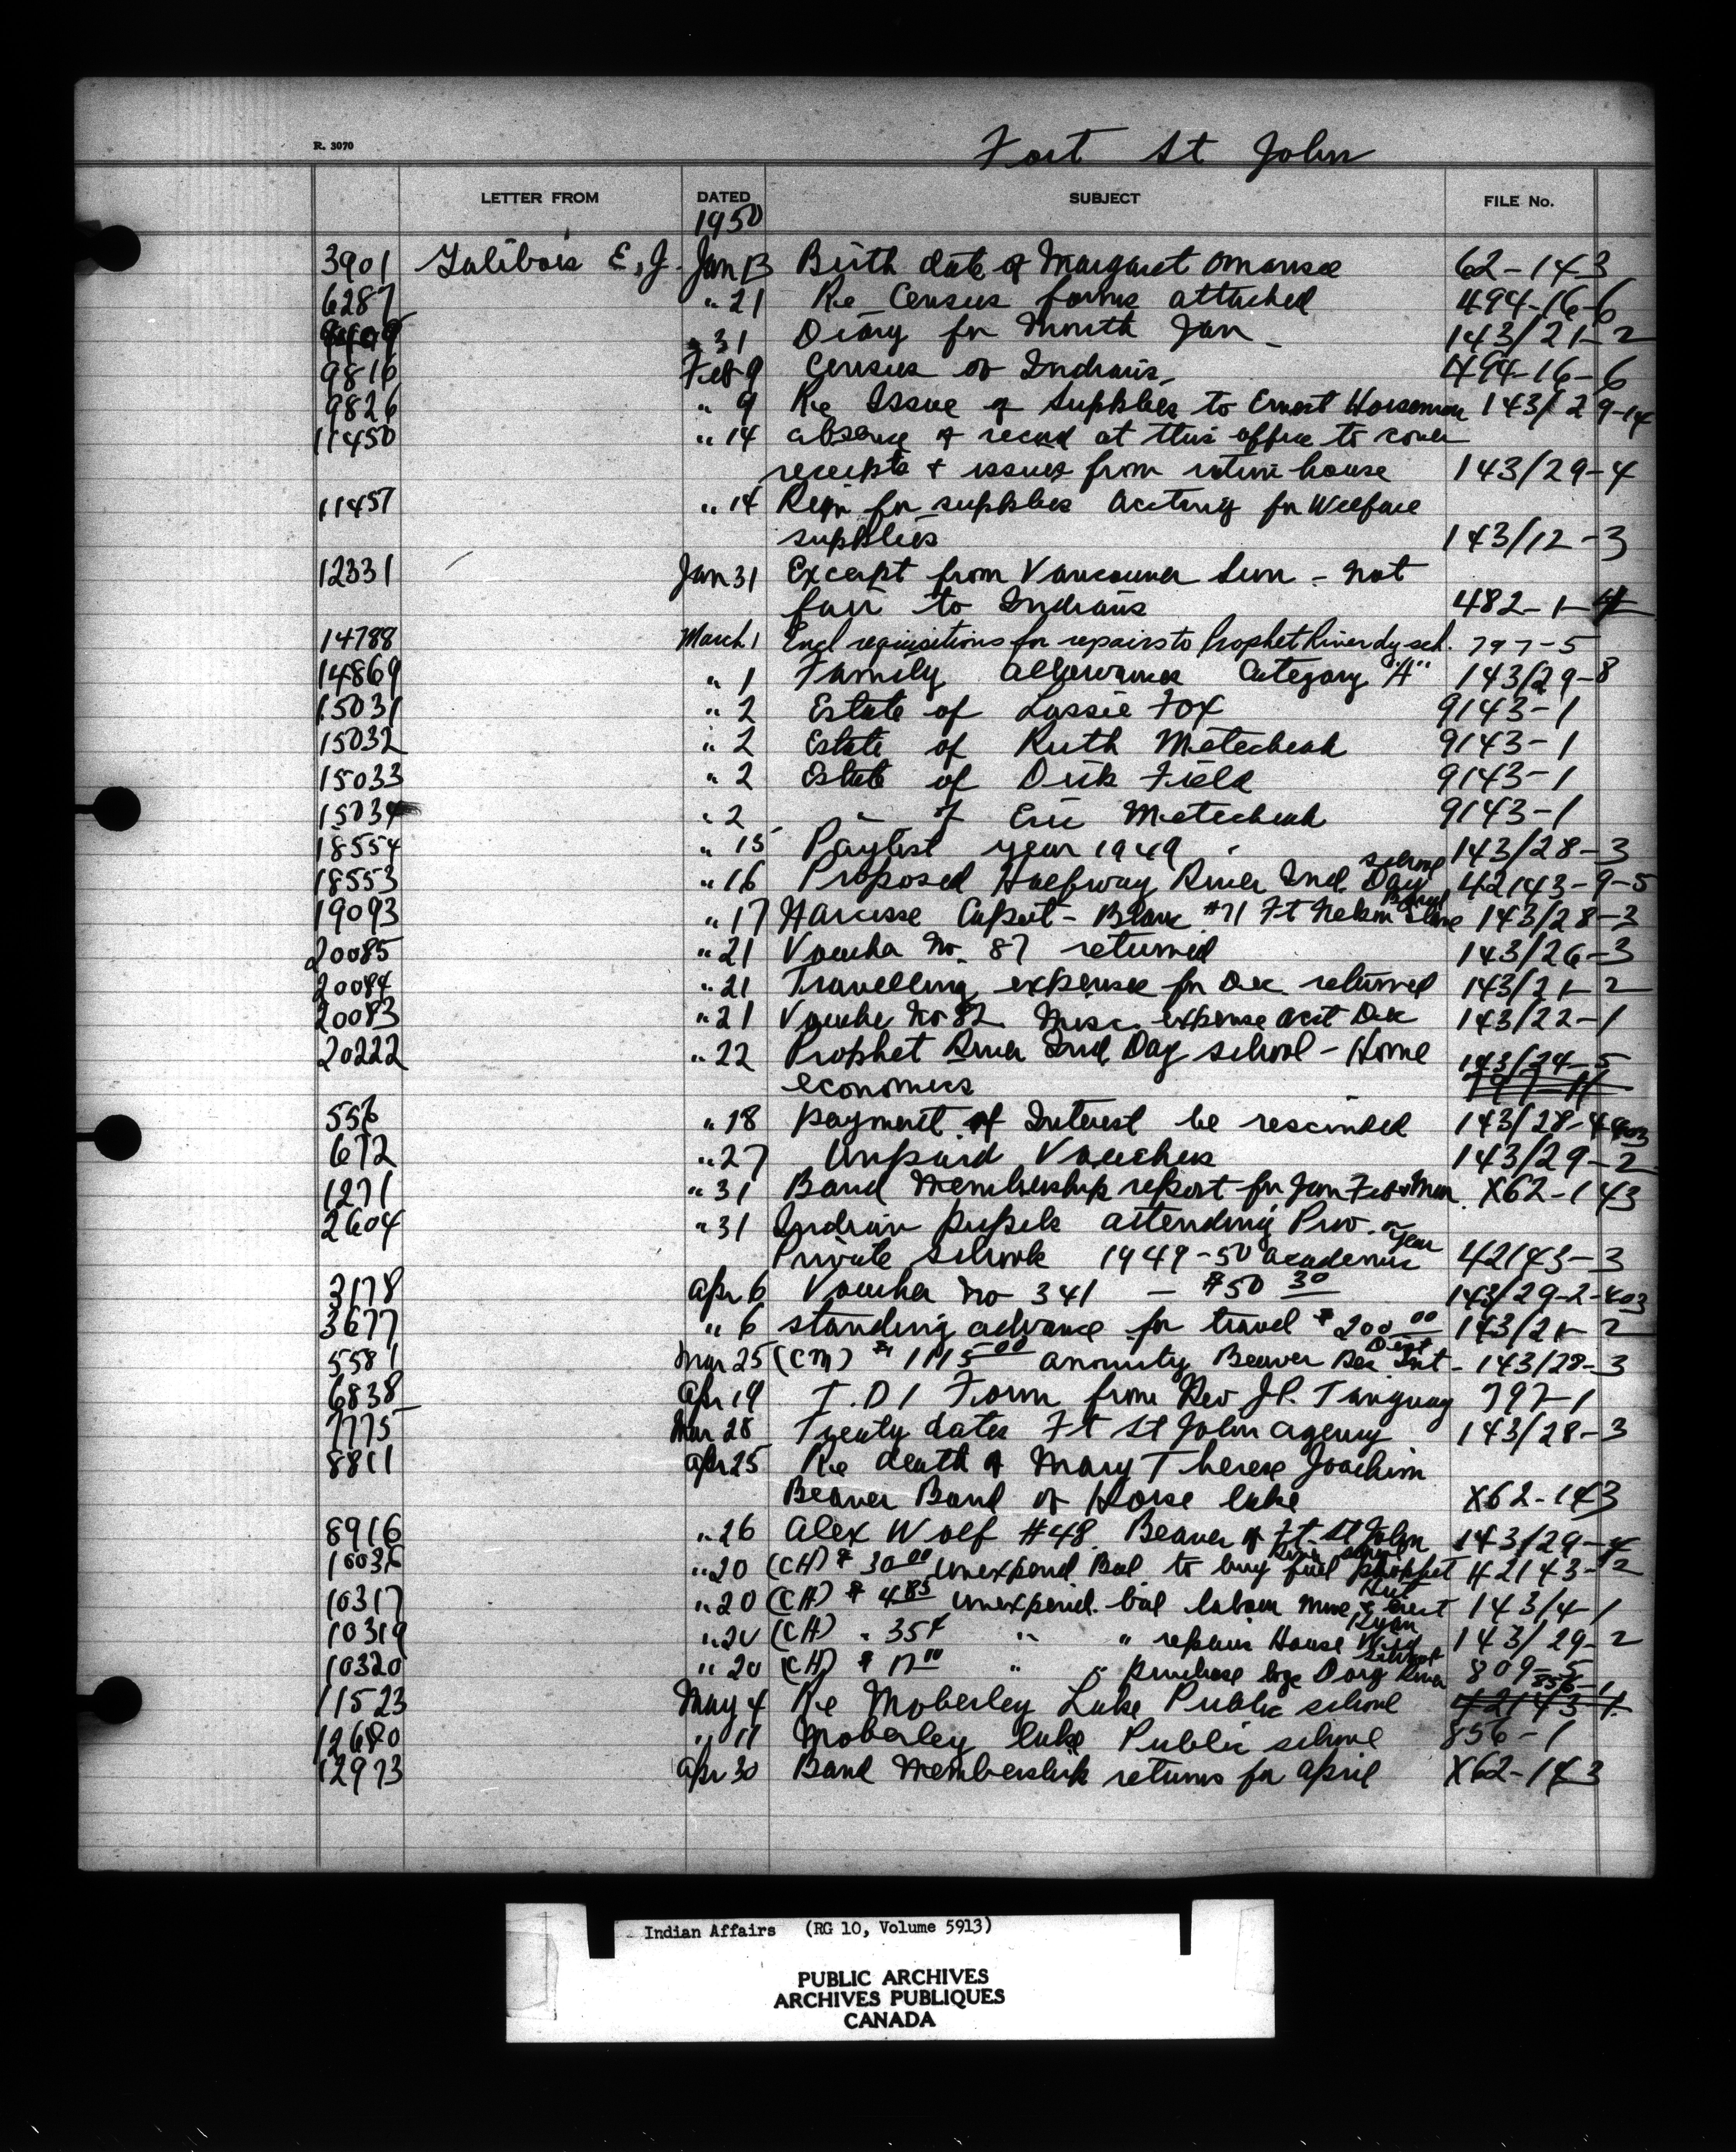 R. 3070
Fort St John
LETTER FROM DATED SUBJECT FILE No.
1950
3901 Galibois E, J. Jan 13 Birth date of Margaret Omansee 62-143
6287 " 21 Re Census forms attached 494-16-6
" 31 Diary for Month Jan - 143/21-2
9816 Feb 9 Census of Indians - 494-16-6
9826 " 9 Re Issue of Supplies to Ernest Horseman 143/29-14
11450 " 14 absence of record at this office to cover
receipts & issues from ration house 143/29-4
11457 " 14 Reqn for supplies Acctng for Welfare
supplies 143/12-3
12331 Jan 31 Excerpt from Vancouver Sun - not
fair to Indians 482-1-4
14788 March 1 Encl requisitions for repairs to Prophet River dy sch. 797-5
14869 " 1 Family allowances Category "A" 143/29-8
15031 " 2 Estate of Lassie Fox 9143-1
15032 " 2 Estate of Ruth Metecheah 9143-1
15033 " 2 Estate of Dick Field 9143-1
15034 " 2 " of Eric Metecheah 9143-1
18554 " 15 Paylist year 1949 143/28-3
18553 " 16 Proposed Halfway River Ind. Day School 42143-9-5
19093 " 17 Narcisse Capot - Blanc #71 Ft Nelson Slave Band 143/28-3
20085 " 21 Voucher No. 87 returned 143/26-3
20084 " 21 Travelling expenses for Dec. returned 143/21-2
20083 " 21 Voucher No 82. Misc. expense acct Dec 143/22-1
20222 " 22 Prophet River Ind Day school - Home 143/24-5
economics 797-11
556 " 18 payment of Interest be rescinded 143/28-4
672 " 27 Unpaid Vouchers 143/29-2
1271 " 31 Band Membership report for Jan Feb & Mar. X62-143
2604 " 31 Indian pupils attending Prov. or
Private schools 1949-50 academic year 42143-3
3178 Apr 6 Voucher No 341 - $50 30 143/29-2-403
3677 " 6 standing advance for travel $200 00 143/21-2
5581 Mar 25 (CM) $1115 00 annuity Beaver Dist - 143/28-3
6838 Apr 19 I.D 1 Form from Rev J.P. Tanguay 797-1
7775 Mar 28 Treaty dates Ft St John agency 143/28-3
8811 Apr 25 Re death of Mary Therese Joachim
Beaver Band of Horse Lake X62-143
8916 " 26 Alex Wolf #48. Beaver of Ft. St John 143/29-4
10036 " 20 (CH) $30 00 unexpend Bal to buy fuel Prophet River school 42143-12
10317 " 20 (CH) $4 85 unexpend. bal labour move & erect Hut 143/4-1
10319 " 20 (CH) " 35¢ " " repairs House Ryan 143/29-2
10320 " 20 (CH) $17 00 " " purchase logs Doig River school 809-5
11523 May 4 Re Moberley Lake Public school 42143-1 856-1
12680 " 11 Moberley Lake Public school 856-1
12973 Apr 30 Band Membership returns for April X62-143
Indian Affairs (RG 10, Volume 5913)
PUBLIC ARCHIVES
ARCHIVES PUBLIQUES
CANADA